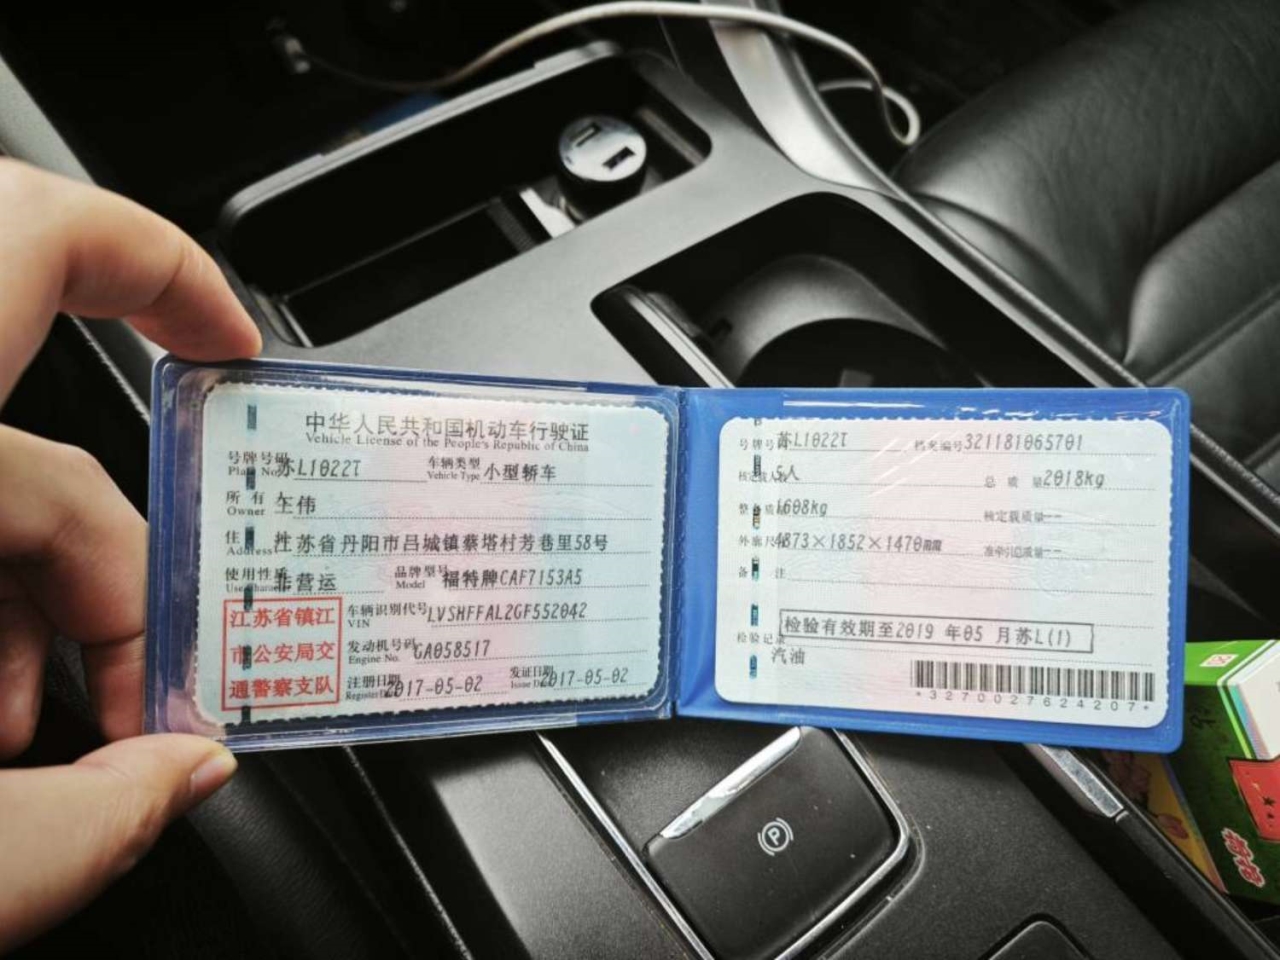 中华人民共和国机动车行驶证
Vehicle License of the People's Republic of China
号牌号码 苏L1022T 车辆类型 小型轿车
Plate No. Vehicle Type
所有人 王伟
Owner
住址 江苏省丹阳市吕城镇蔡塔村芳巷里58号
Address
使用性质 非营运 品牌型号 福特牌CAF7153A5
Use Character Model
江苏省镇江
市公安局交
通警察支队
车辆识别代号 LVSHFFAL2GF552042
VIN
发动机号码 GA058517
Engine No.
注册日期 2017-05-02 发证日期 2017-05-02
Register Date Issue Date
号牌号码 苏L1022T 档案编号 321181065701
核定载人数 5人 总质量 2018kg
整备质量 1608kg 核定载质量 --
外廓尺寸 4873×1852×1470mm 准牵引总质量 --
备注
检验有效期至2019年05月苏L(1)
检验记录
汽油
*3270027624207*
P